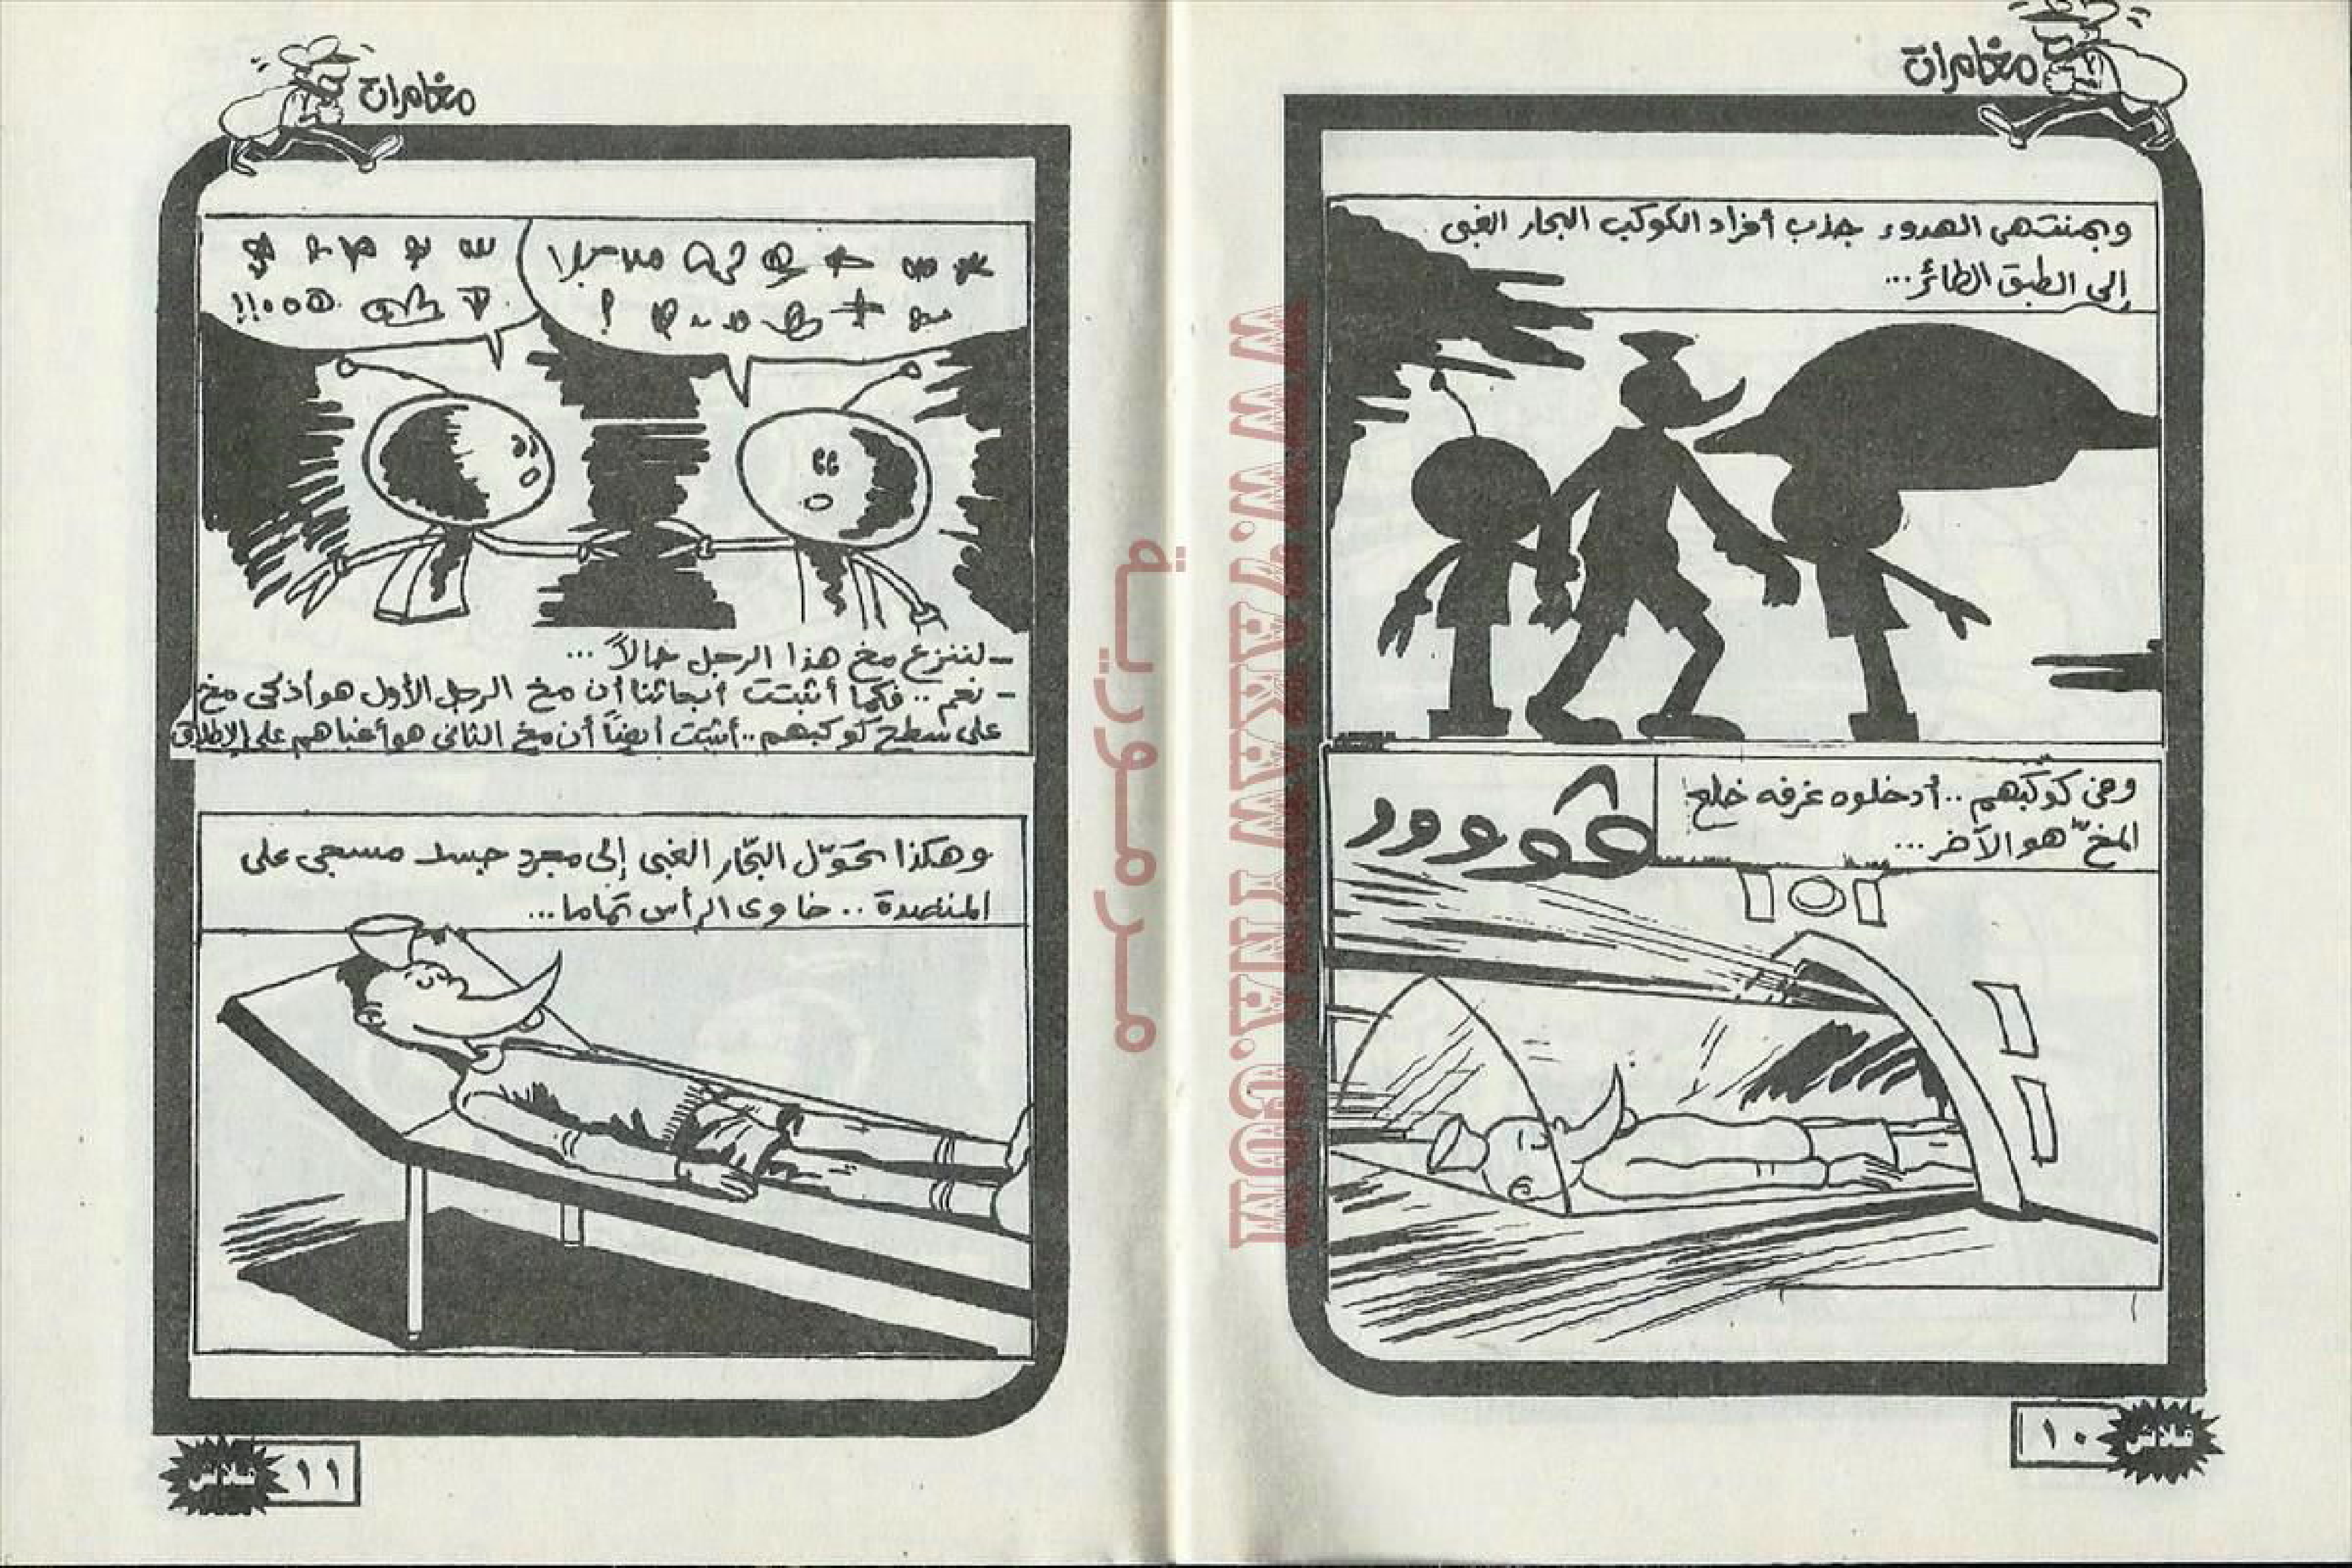 مغامرات
وبمنتهى الهدوء جذب أفراد الكوكب البحار الغبى
إلى الطبق الطائر...
وفى كوكبهم.. أدخلوه غرفه خلع
المخ هو الآخر...
ڤووور
١٠
فلاش
مغامرات
- لننزع مخ هذا الرجل حالاً...
- نعم.. فكما أثبتت أبحاثنا أن مخ الرجل الأول هو أذكى مخ
على سطح كوكبهم.. أثبتت أيضاً أن مخ الثانى هو أغباهم على الإطلاق
وهكذا تحوّل البحّار الغبى إلى مجرد جسد مسجى على
المنضدة.. خاوى الرأس تماما...
١١
فلاش
مرمورية